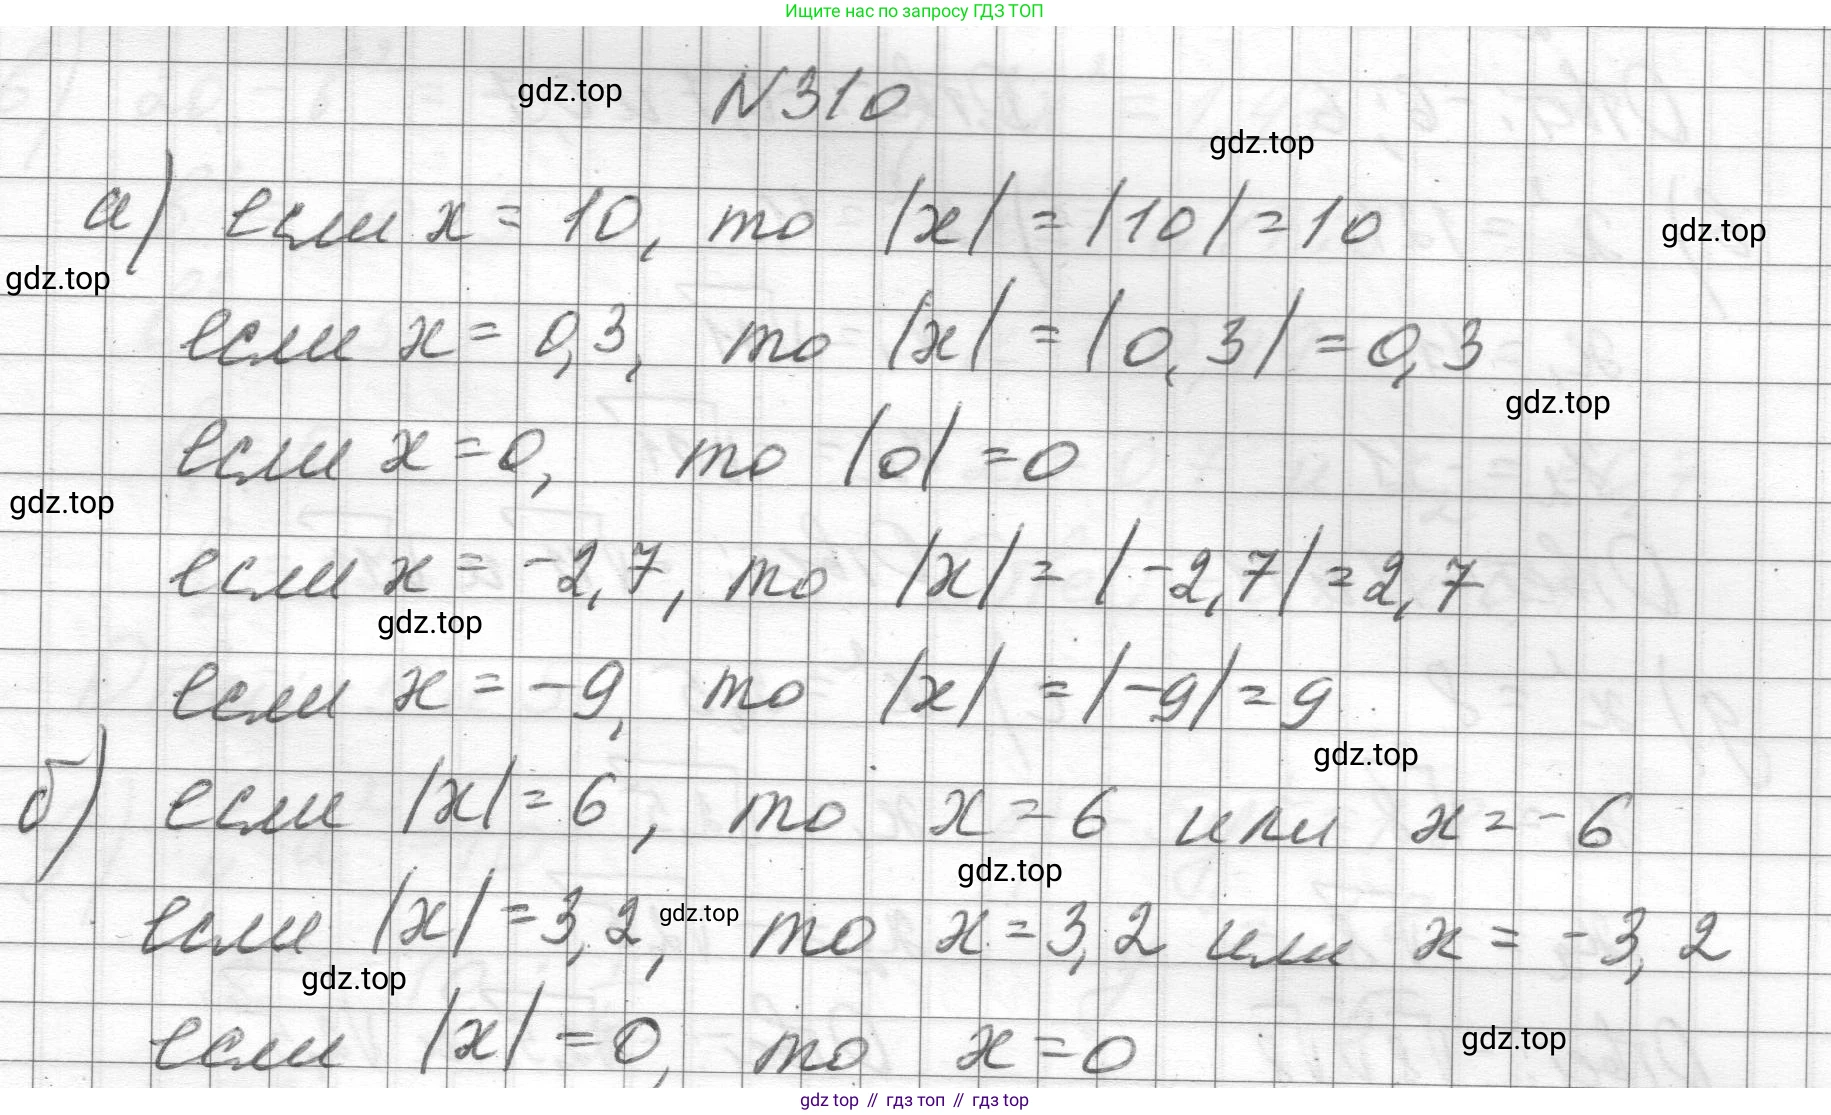 Ищите нас по запросу ГДЗ ТОП
gdz.top
N310
gdz.top
а) если x = 10, то |x| = |10| = 10
gdz.top
gdz.top
если x = 0,3, то |x| = |0,3| = 0,3
gdz.top
если x = 0, то |0| = 0
gdz.top
если x = -2,7, то |x| = |-2,7| = 2,7
gdz.top
если x = -9, то |x| = |-9| = 9
gdz.top
б) если |x| = 6, то x = 6 или x = -6
gdz.top
если |x| = 3,2, то x = 3,2 или x = -3,2
gdz.top
gdz.top
если |x| = 0, то x = 0
gdz.top
gdz top // гдз топ // гдз top